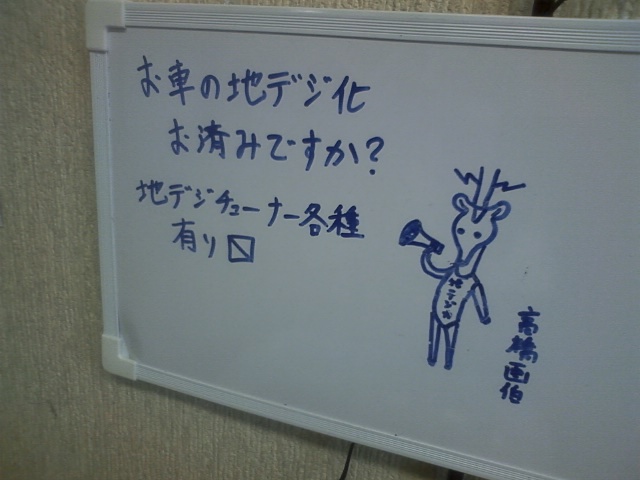 お車の地デジ化
お済みですか?
地デジチューナー各種
有り〼
地デジカ
高橋画伯